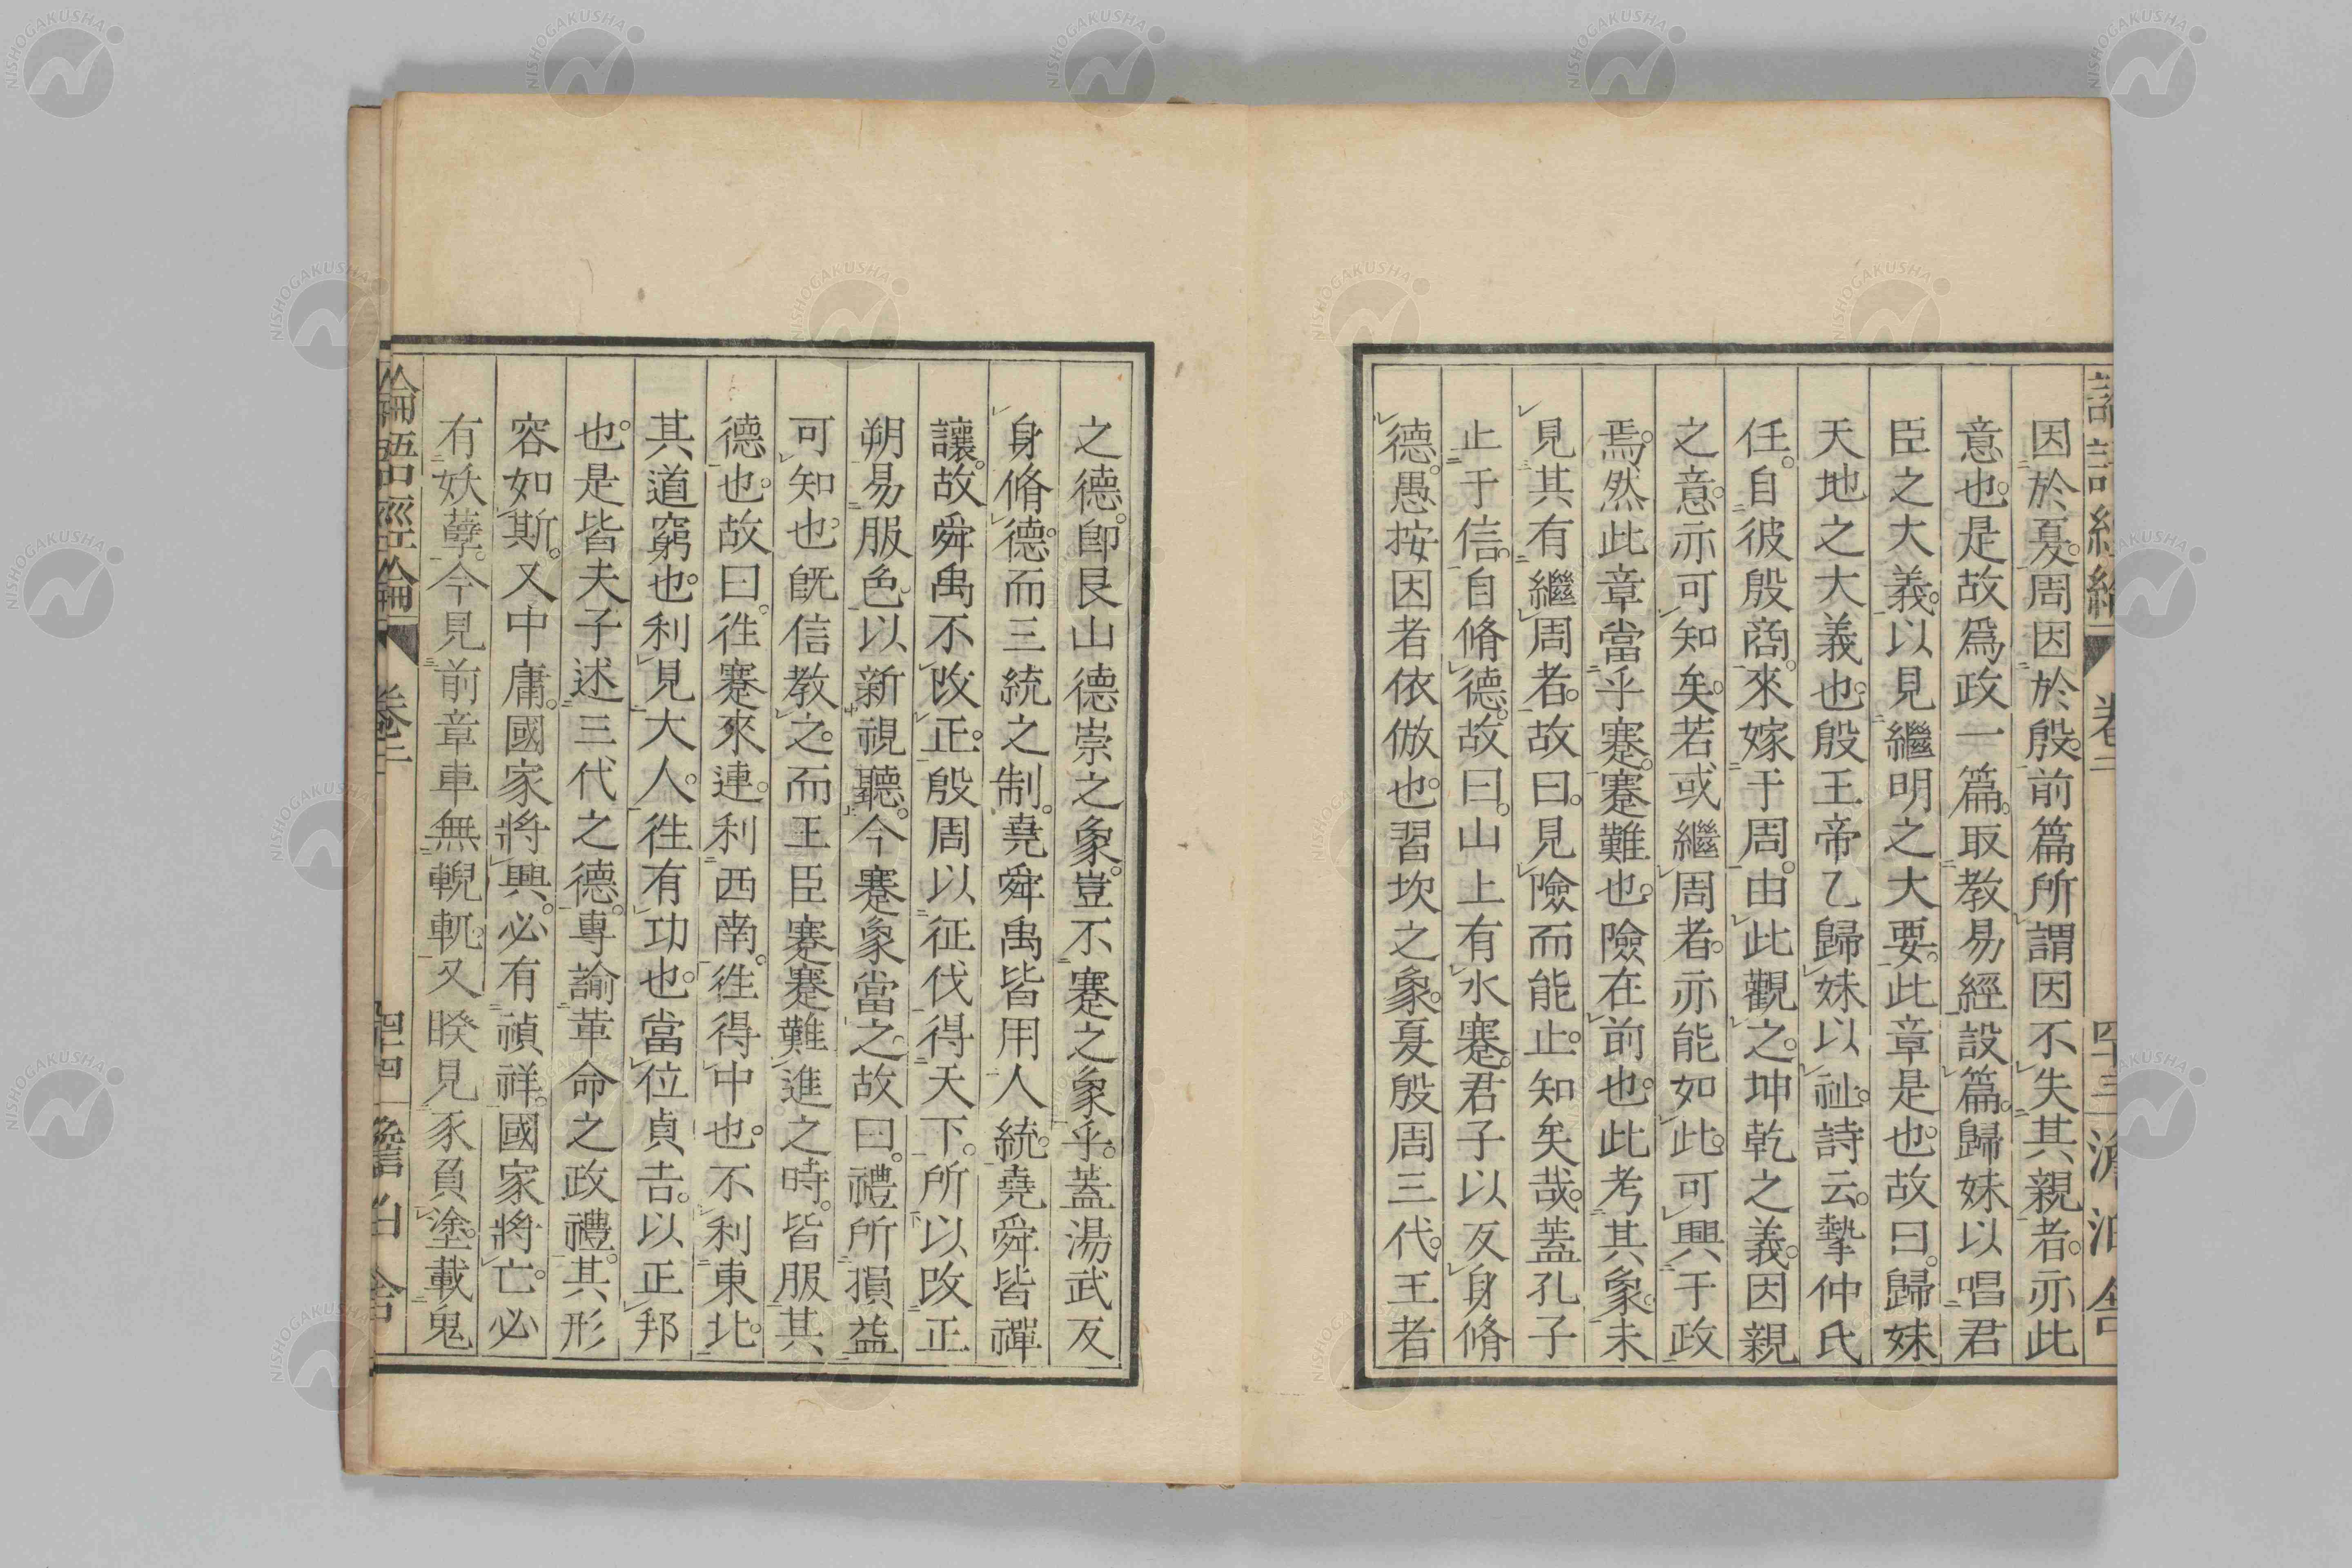 因於夏。周因於殷。前篇所謂因不失其親者。亦此
意也。是故爲政一篇。取教易經設篇。歸妹以唱君
臣之大義。以見繼明之大要。此章是也。故曰。歸妹
天地之大義也。殷王帝乙歸妹以祉。詩云。摯仲氏
任。自彼殷商。來嫁于周。由此觀之。坤乾之義。因親
之意。亦可知矣。若或繼周者。亦能如此。可興于政
焉。然此章當乎蹇。蹇難也。險在前也。此考其象。未
見其有繼周者。故曰。見險而能止。知矣哉。蓋孔子
止于信。自脩德。故曰。山上有水蹇。君子以反身脩
德。愚按因者依倣也。習坎之象。夏殷周三代。王者
之德。卽艮山德崇之象。豈不蹇之象乎。蓋湯武反
身脩德。而三統之制。堯舜禹皆用人統。堯舜皆禪
讓。故舜禹不改正。殷周以征伐得天下。所以改正
朔易服色。以新視聽。今蹇象當之。故曰。禮所損益
可知也。旣信教之。而王臣蹇蹇難進之時。皆服其
德也。故曰。徃蹇來連。利西南。徃得中也。不利東北。
其道窮也。利見大人。徃有功也。當位貞吉。以正邦
也。是皆夫子述三代之德。專諭革命之政禮。其形
容如斯。又中庸。國家將興。必有禎祥。國家將亡。必
有妖孽。今見前章車無輗軏。又睽見豕負塗。載鬼
論語經論 卷二 四十四 澹泊舍
卷二 四十三 澹泊舍
NISHOGAKUSHA